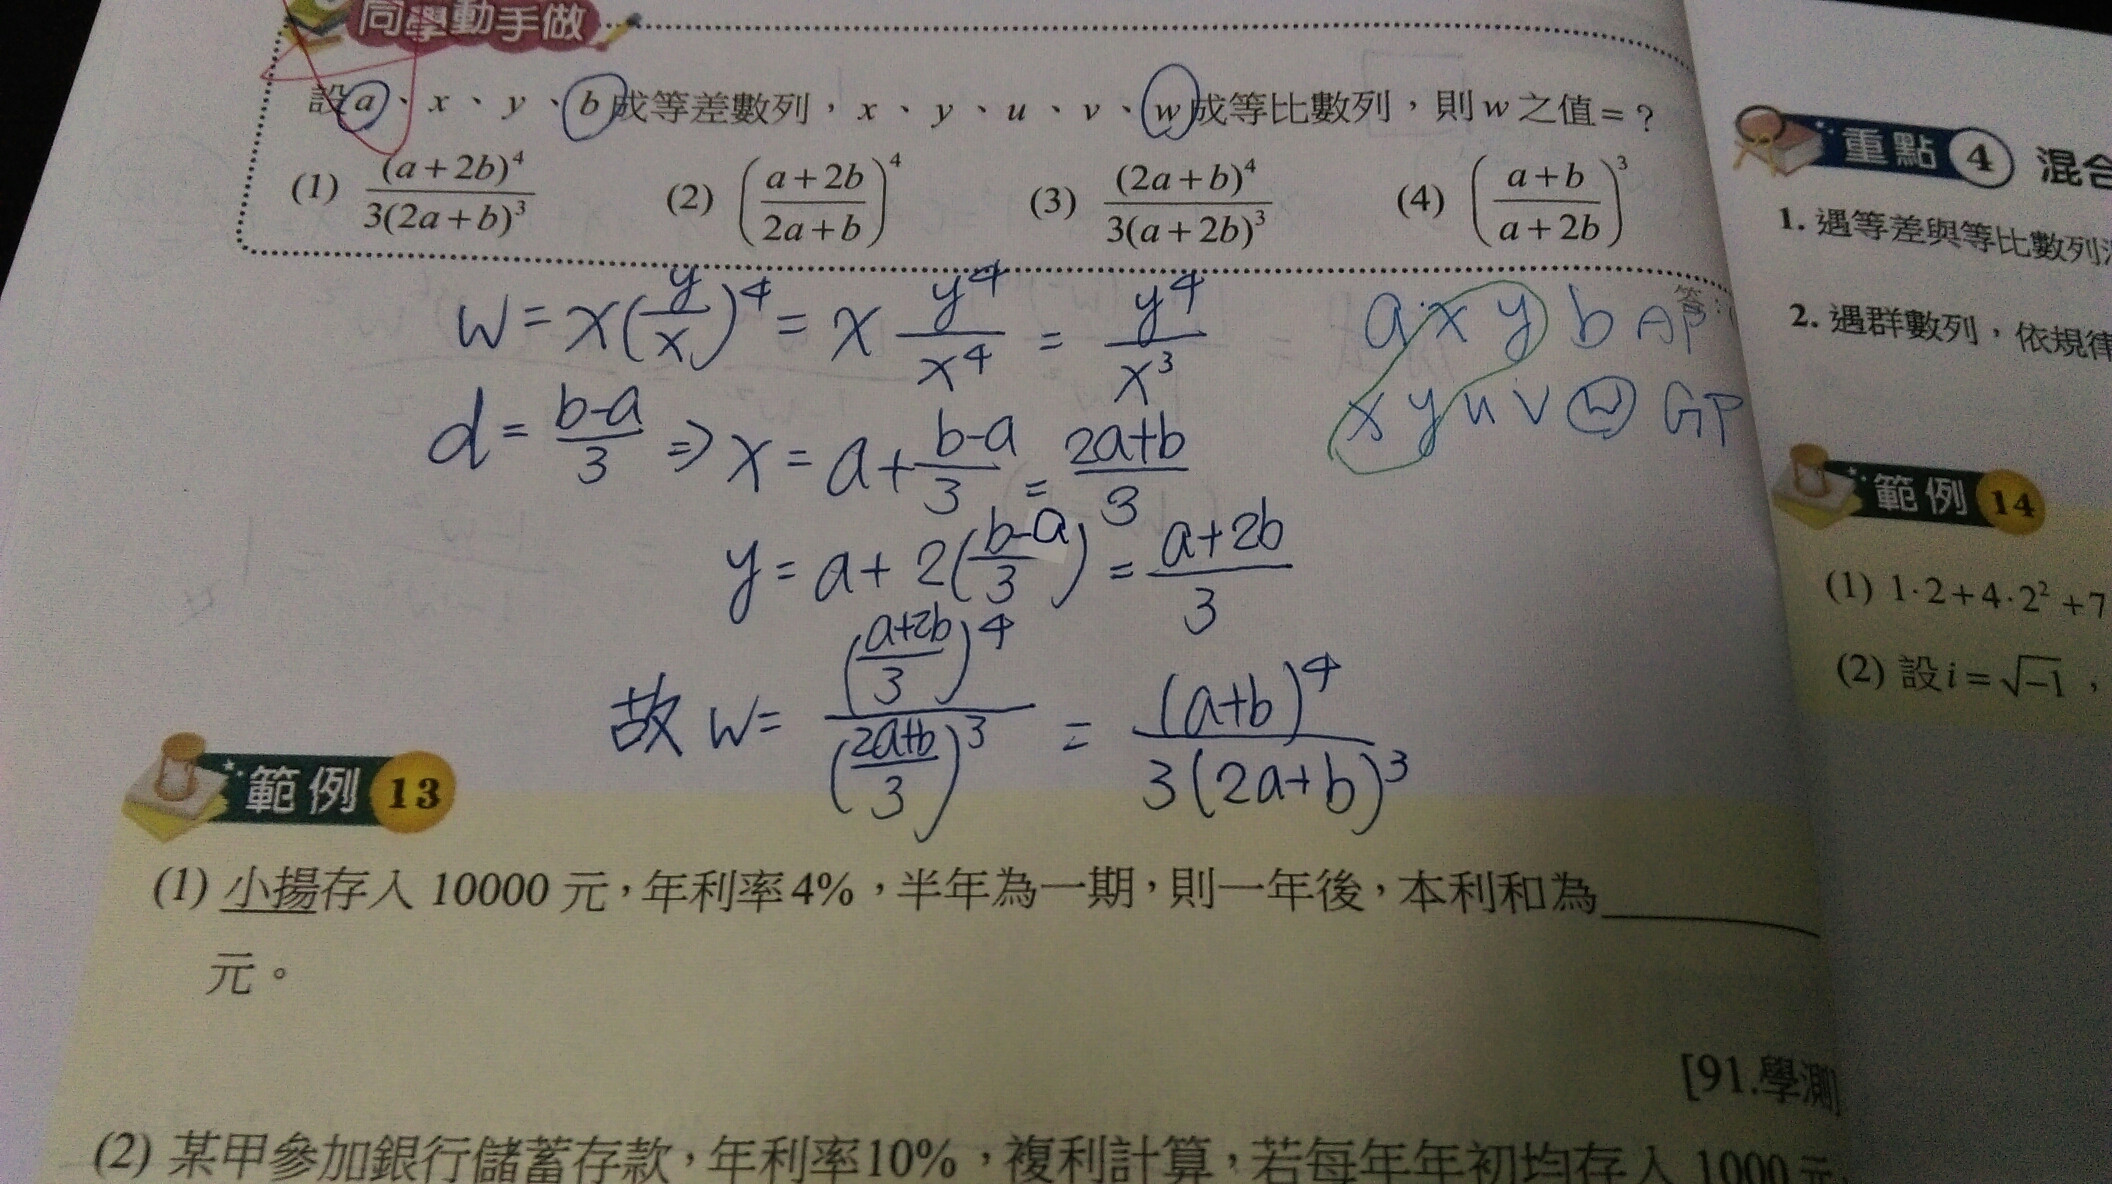 同學動手做
設a、x、y、b成等差數列，x、y、u、v、w成等比數列，則w之值=？
(1) (a+2b)⁴/3(2a+b)³ (2) ((a+2b)/(2a+b))⁴ (3) (2a+b)⁴/3(a+2b)³ (4) ((a+b)/(a+2b))³
答：
w = x(y/x)⁴ = x y⁴/x⁴ = y⁴/x³
a x y b AP
x y u v w GP
d = (b-a)/3 ⇒ x = a + (b-a)/3 = (2a+b)/3
y = a + 2((b-a)/3) = (a+2b)/3
故 w = ((a+2b)/3)⁴/((2a+b)/3)³ = (a+b)⁴/3(2a+b)³
範例 13
(1) 小揚存入 10000 元，年利率4%，半年為一期，則一年後，本利和為
元。
[91.學測
(2) 某甲參加銀行儲蓄存款，年利率10%，複利計算，若每年年初均存入 1000 元
重點 4 混合
1. 遇等差與等比數列
2. 遇群數列，依規律
範例 14
(1) 1·2+4·2²+7
(2) 設i=√-1，